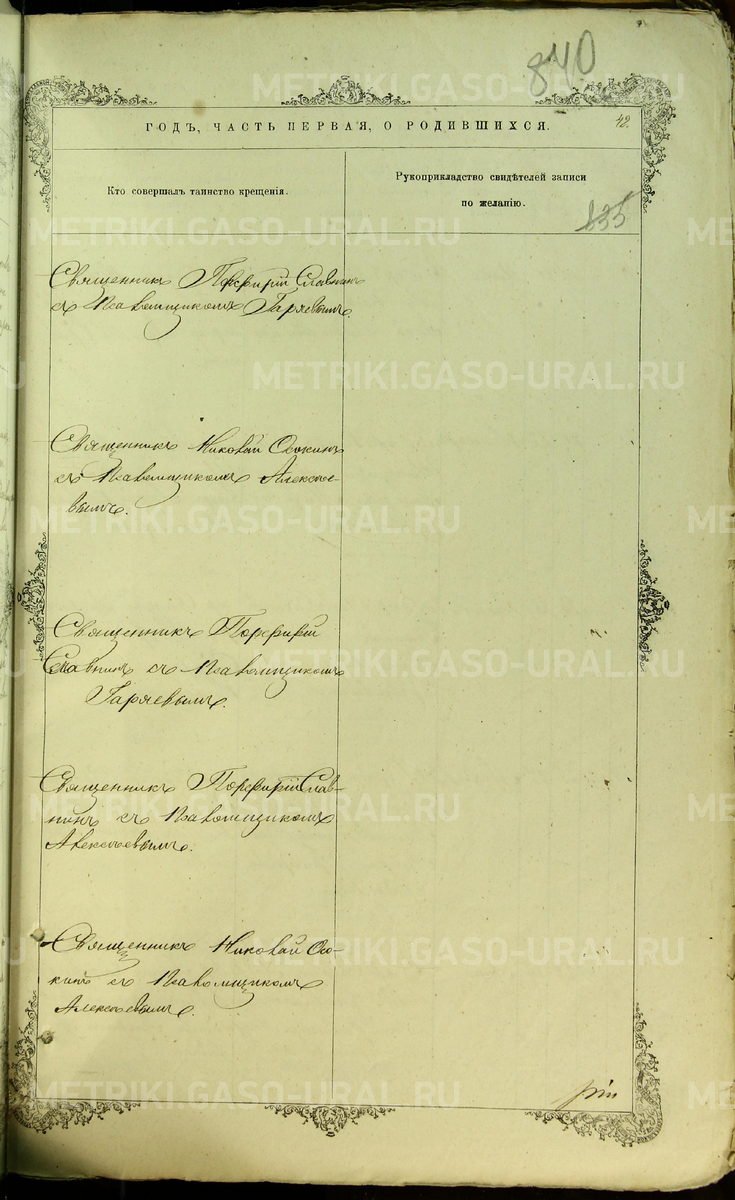 840
ГОДЪ, ЧАСТЬ ПЕРВАЯ, О РОДИВШИХСЯ.
42.
Кто совершалъ таинство крещенія.
Рукоприкладство свидѣтелей записи
по желанію.
835
Священникъ Порфирій Славнинъ
съ Псаломщикомъ Гаряевымъ.
Священникъ Николай Осокинъ
съ Псаломщикомъ Алексѣе-
вымъ.
Священникъ Порфирій
Славнинъ съ Псаломщикомъ
Гаряевымъ.
Священникъ Порфирій Слав-
нинъ съ Псаломщикомъ
Алексѣевымъ.
Священникъ Николай Осо-
кинъ съ Псаломщикомъ
Алексѣевымъ.
METRIKI.GASO-URAL.RU